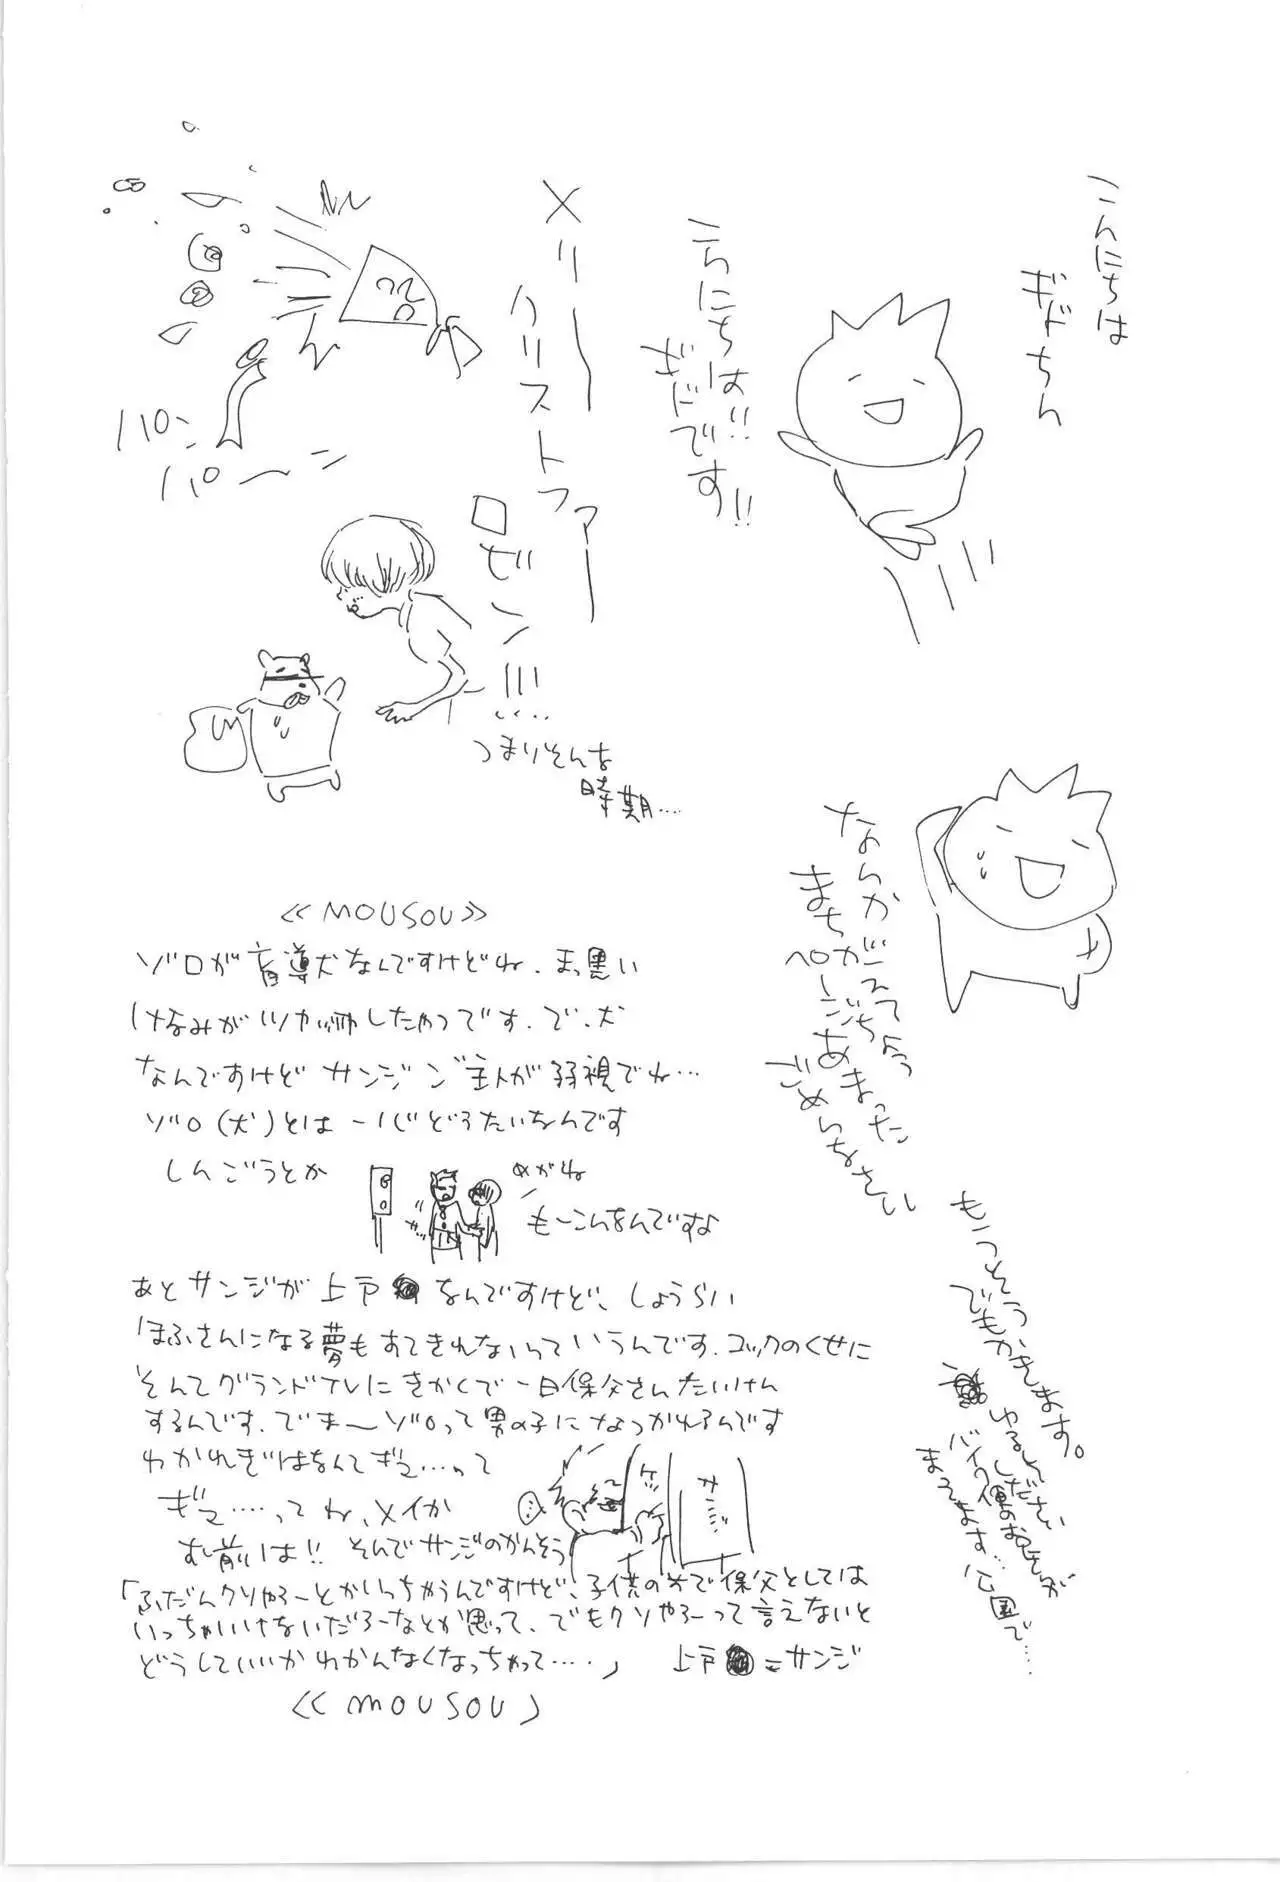 こんにちは
ギドちん
こんにちは!!
ギドです!!
メリー
クリストファー
ロビン!!!
パン
パーン
つまりそんな
時期…
なんかがんえて
まちがえちょう
ページあまった
ごめんなさい
もうてそう
でもかきます。
ゆるしください
バイク便のお兄さんが
まってます…公園で…
≪MOUSOU≫
ゾロが盲導犬なんですけどね、まっ黒い
けなみがツカツカしたやつです。で、犬
なんですけど サンジご主人が弱視でね…
ゾロ(犬)とは一バどうたいなんです
しんごうとか
めがね
もーこんなんですよ
あとサンジが上戸 なんですけど、しょうらい
ほふさんになる夢もすてきれないっていうんです。コックのくせに
そんでグランドTVにきかくで一日保父さんたいけん
するんです。でま〜ゾロって男の子になつかれるんです
わかれぎはなんてギュ……って
ギュ……ってね、メイか
む前は!! そんでサンジのかんそう
サンジ
「ふだんクソやろーとかいっちゃうんですけど、子供の前で保父としては
いっちゃいけないだろーなとか思って、でもクソやろーって言えないと
どうしていいかわかんなくなっちゃって……」 上戸 =サンジ
≪MOUSOU》